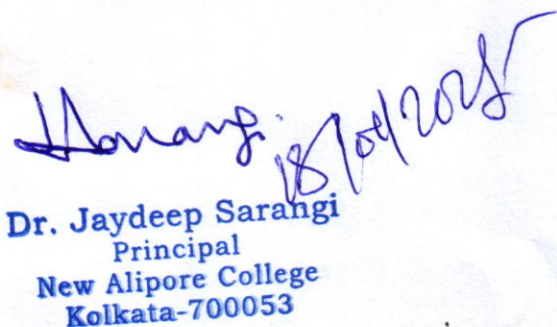 Sarangi
18/04/2025
Dr. Jaydeep Sarangi
Principal
New Alipore College
Kolkata-700053